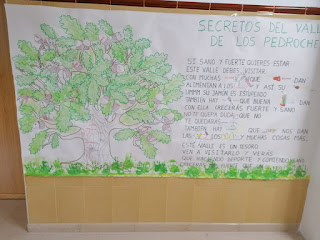 SECRETOS DEL VALL
DE LOS PEDROCHE
SI SANO Y FUERTE QUIERES ESTAR
ESTE VALLE DEBES VISITAR
CON MUCHAS QUE DAN
ALIMENTAN A LOS Y ASI SU
UMMM SU JAMON ES ESTUPENDO
TAMBIEN HAY QUE BUENA DAN
CON ELLA CRECERAS FUERTE Y SANO
NO TE QUEPA DUDA, QUE NO
TE QUEDARAS
TAMBIEN HAY QUE NOS DAN
LAS Y LOS Y MUCHAS COSAS MAS.
ESTE VALLE ES UN TESORO
VEN A VISITARLO Y VERAS
QUE HACIENDO DEPORTE Y COMIENDO